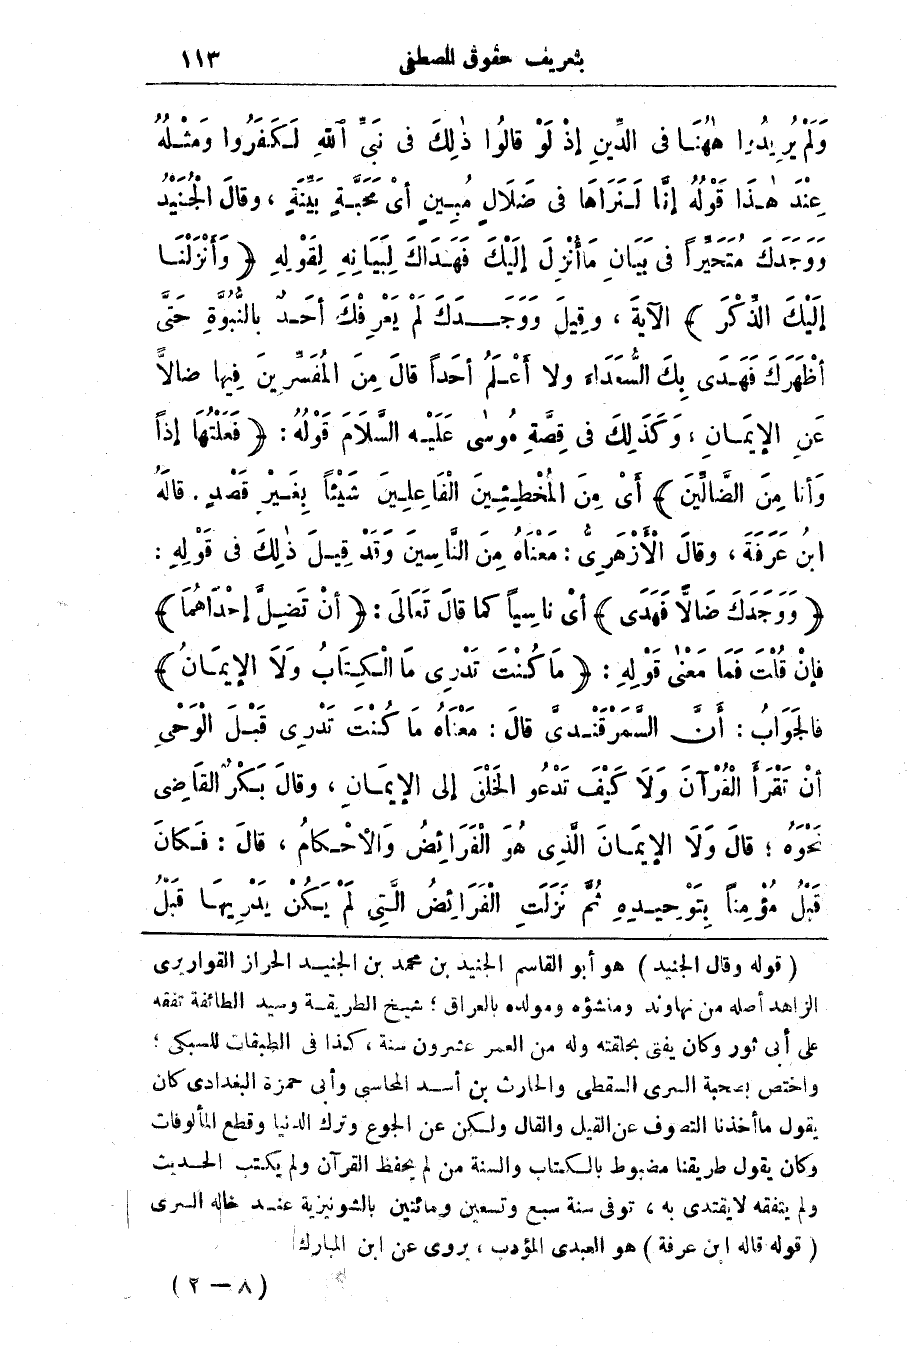 بتعريف حقوق المصطفى ١١٣
وَلَمْ يُرِيدُوا هٰهُنَا فى الدِّينِ إِذْ لَوْ قالُوا ذٰلِكَ فى نَبِّى ٱللهِ لَكَفَرُوا وَمَثْلُهُ
عِنْدَ هٰذَا قَوْلُهُ إِنَّا لَنَرَاهَا فى ضَلَالٍ مُبِينٍ أىْ مَحَبَّةٍ بَيِّنَةٍ ، وقالَ الْجُنَيْدُ
وَوَجَدَكَ مُتَحَيِّراً فى بَيَانِ مَاأُنْزِلَ إلَيْكَ فَهَدَاكَ لِبَيَانِهِ لِقَوْلِهِ ﴿ وَأَنْزَلْنَا
إلَيْكَ الذِّكْرَ ﴾ الآيةَ ، وقِيلَ وَوَجَدكَ لَمْ يَعْرِفْكَ أحَدٌ بالنُّبُوَّةِ حَتَّى
أظْهَرَكَ فَهَدَى بِكَ السُّعَدَاءَ ولا أَعْلَمُ أحَداً قالَ مِنَ الْمُفَسِّرِينَ فِيها ضالاًّ
عَنِ الإيمَانِ ، وَكَذَلِكَ فى قِصَّةِ مُوسٰى عَلَيْهِ السَّلَامَ قَوْلُهُ : ﴿ فَعَلْتُهَا إِذاً
وَأنا مِنَ الضَّالِّينَ ﴾ أىْ مِنَ الْمُخْطِئِينَ الْفَاعِلِينَ شَيْئاً بِغَيْرِ قَصْدٍ . قالَهُ
ابنُ عَرَفَةَ ، وقالَ الْأَزْهَرِىُّ : مَعْنَاهُ مِنَ النَّاسِينَ وَقَدْ قِيلَ ذٰلِكَ فى قَوْلِهِ :
﴿ وَوَجَدَكَ ضَالًّا فَهَدَى ﴾ أىْ ناسِياً كما قالَ تَعَالَى : ﴿ أنْ تَضِلَّ إحْدَاهُمَا ﴾
فإنْ قُلْتَ فَمَا مَعْنٰى قَوْلِهِ : ﴿ مَا كُنْتَ تَدْرِى مَا الْكِتَابُ وَلَا الإيمَانُ ﴾
فالجَوَابُ : أَنَّ السَّمَرْقَنْدىَّ قالَ : مَعْنَاهُ مَا كُنْتَ تَدْرِى قَبْلَ الْوَحْىِ
أنْ تَقْرَأَ الْقُرْآنَ وَلَا كَيْفَ تَدْعُو الْخَلْقَ إلى الإيمَانِ ، وقالَ بَكْرٌ القَاضِى
نَحْوَهُ ؛ قالَ وَلَا الإيمَانَ الَّذِى هُوَ الْفَرَائِضُ وَالأحْكامُ ، قالَ : فَكانَ
قَبْلُ مُؤْمِناً بِتَوْحِيدِهِ ثُمَّ نَزَلَتِ الْفَرَائِضُ الَّتِى لَمْ يَكُنْ يَدْرِيهَا قَبْلُ
( قوله وقال الجنيد ) هو أبو القاسم الجنيد بن محمد بن الجنيد الخراز القواريرى
الزاهد أصله من نهاوند ومنشؤه ومولده بالعراق ؛ شيخ الطريقة وسيد الطائفة تفقه
على أبى ثور وكان يفتى بحلقته وله من العمر عشرون سنة ، كذا فى الطبقات للسبكى ؛
واختص بصحبة السرى السقطى والحارث بن أسد المحاسبى وأبى حمزة البغدادى كان
يقول ماأخذنا التصوف عن القيل والقال ولكن عن الجوع وترك الدنيا وقطع المألوفات
وكان يقول طريقنا مضبوط بالكتاب والسنة من لم يحفظ القرآن ولم يكتب الحديث
ولم يتفقه لايقتدى به ، توفى سنة سبع وتسعين ومائتين بالشونيزية عند خاله السرى
( قوله قاله ابن عرفة ) هو العبدى المؤدب ، يروى عن ابن المبارك
( ٨ — ٢ )